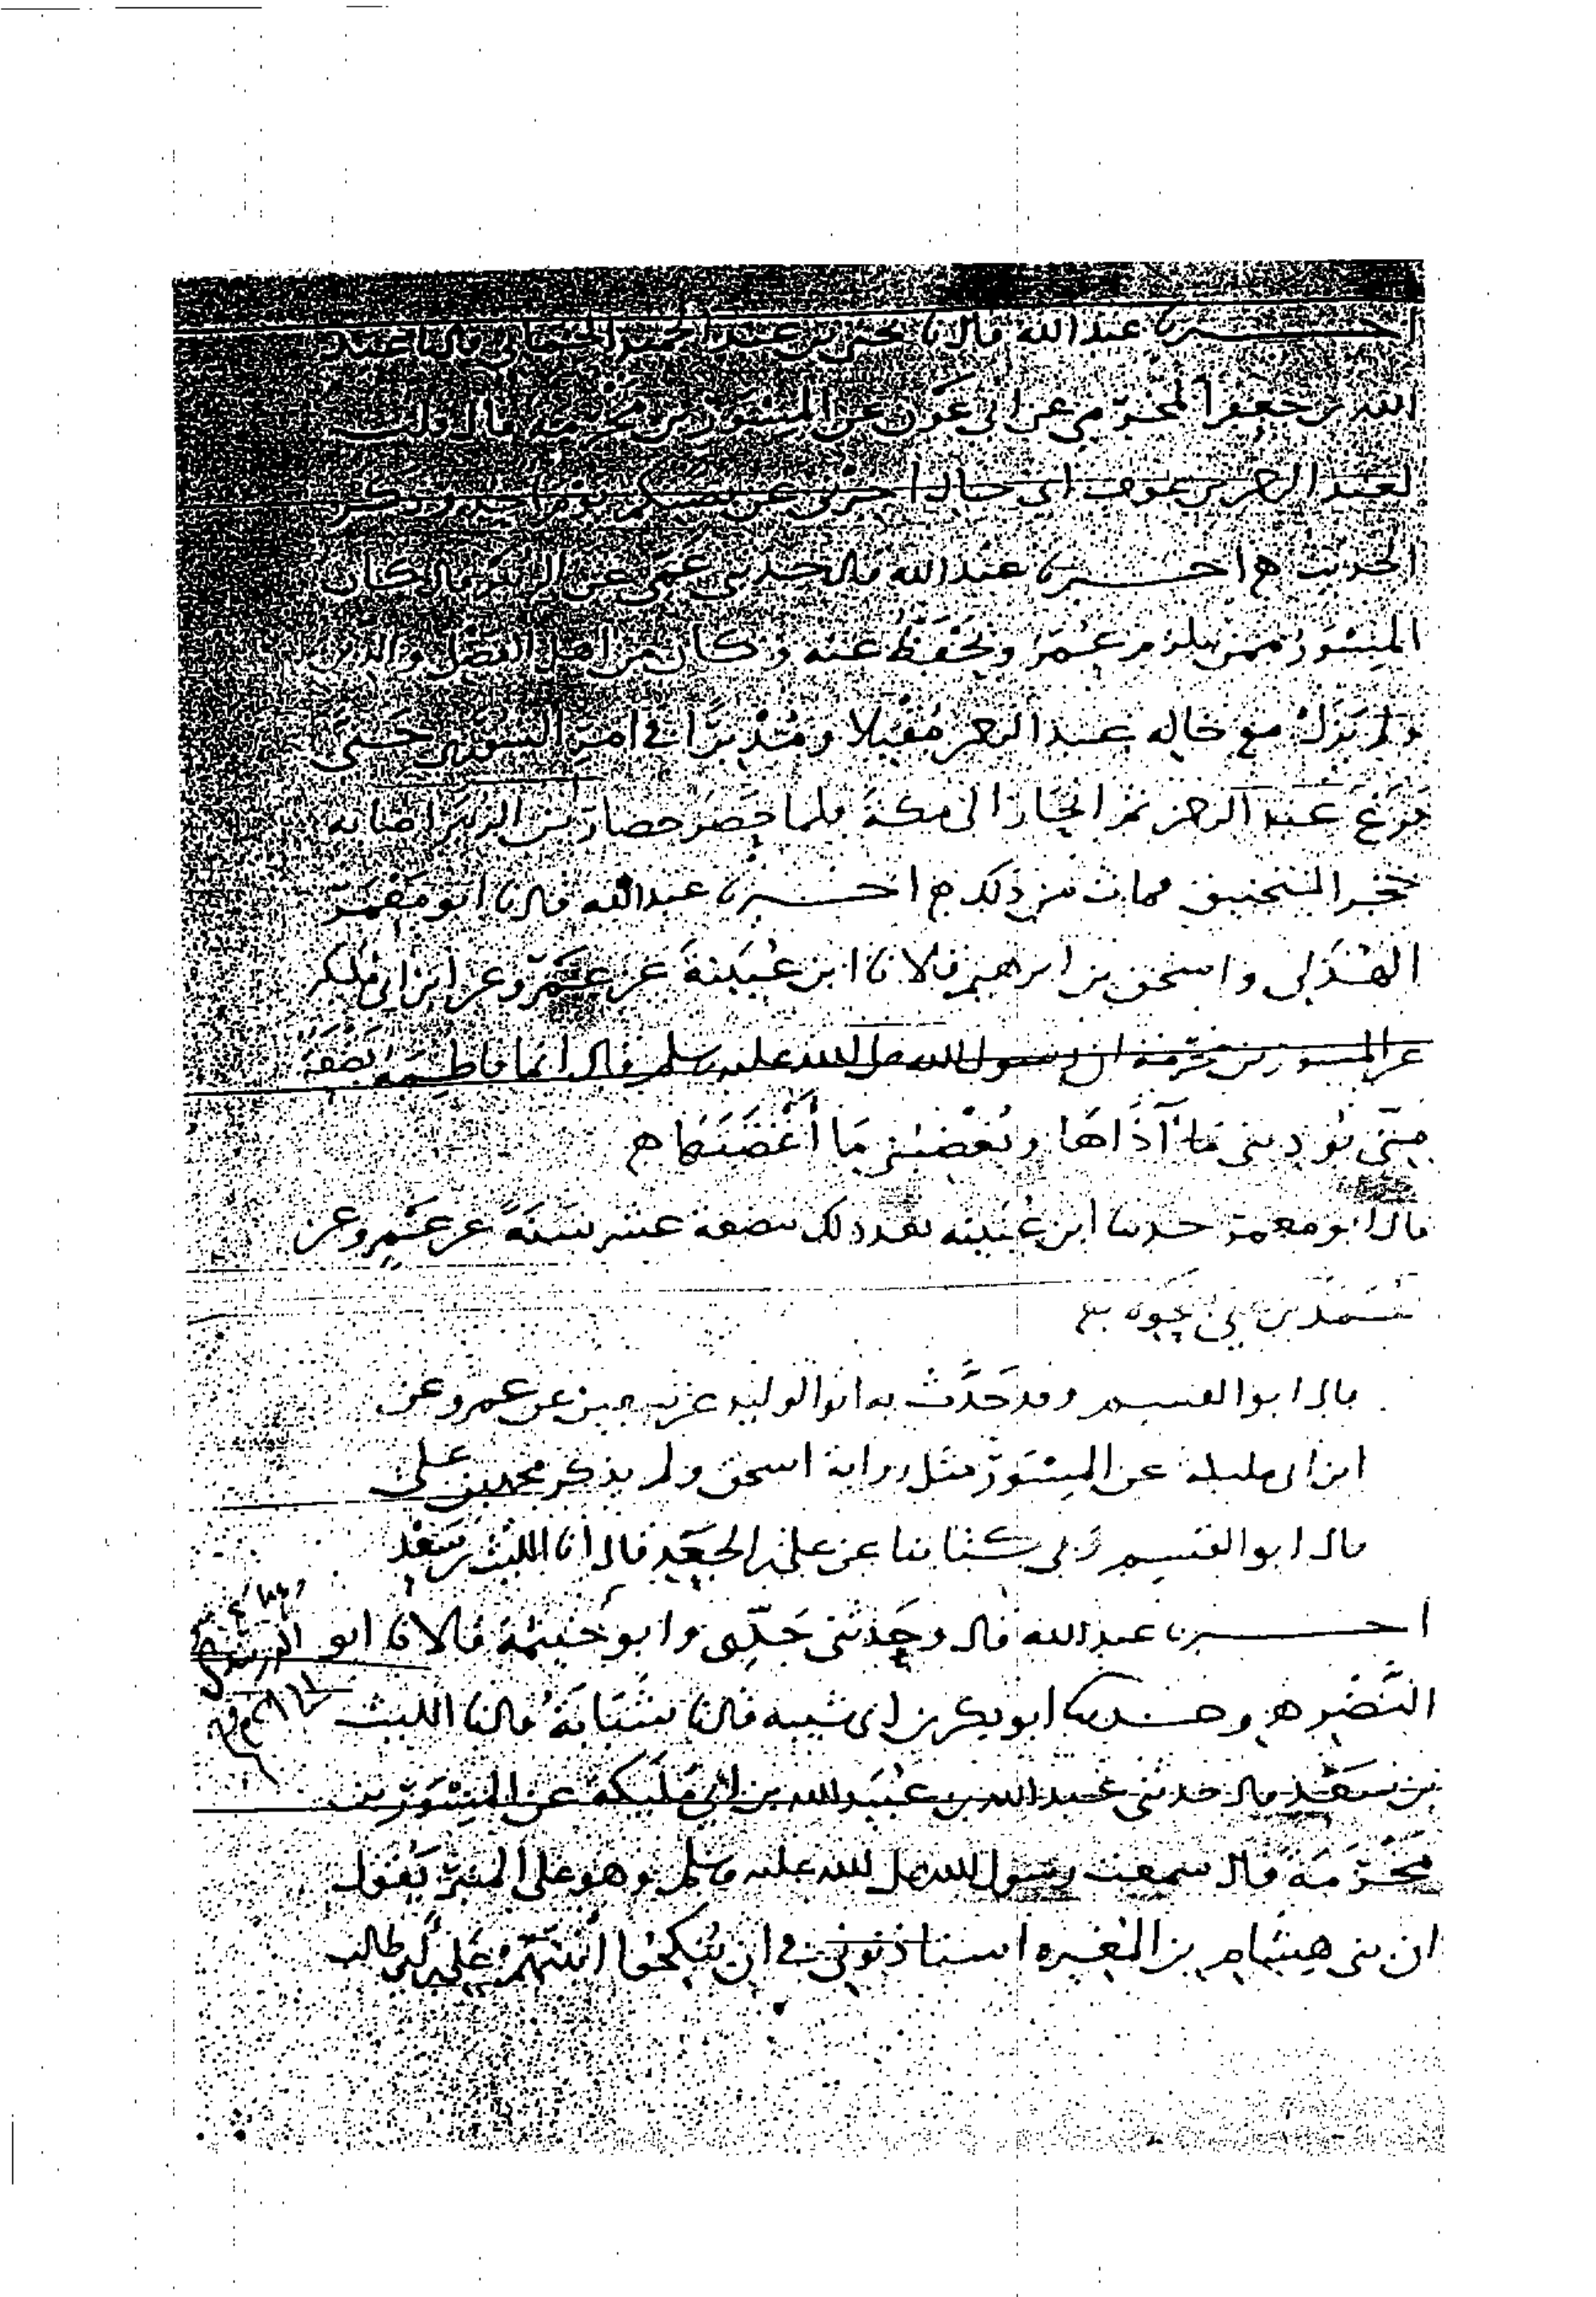 اخبرنا عبد الله قال نا يحيى بن عبد الحميد الحماني قال نا عبد
الله بن جعفر المخرمي عن ابي عون عن المسور بن مخرمة قال قلت
لعبد الرحمن بن عوف اي خال اخبرني عن قصتكم يوم احد وذكر
الحديث ه اخبرنا عبد الله قال حدثني عمي عن الزبير قال كان
المِسْوَر ممن يلزم عُمَر ويَحْفَظُ عنه وكان من اهل الفضل والدين
ولم يَزَلْ مع خاله عبد الرحمن مُقْبِلا ومُدْبِرًا في امر الشورى حتى
فرَغَ عَبد الرحمن ثم انحاز الى مكة فلما حُصِرَ حصار بن الزبير اصابه
حجر المنجنيق فمات من ذلك ه اخبرنا عبد الله قال نا ابو مَعْمَر
الهُذَلي واسحق بن ابرهيم قالا نا ابن عُيَينة عن عَمْرو عن ابن ابي مليكة
عن المسور بن مخرمة ان رسول الله صلى الله عليه وسلم قال انما فاطمة بَضْعَة
مِنّي يُوذيني مَا آذَاهَا ويُغْضِبُني مَا أَغْضَبَهَا ه
قال ابو معمر حدثنا ابن عُيَينه بعد ذلك ببضعة عشر سَنَةً عن عَمْرو عن
محمد بن علي
قال ابو القسم وقد حَدَّث به ابو الوليد عن بن عيينة عن عمرو عن
ابن ابي مليكة عن المِسْوَر مثل رواية اسحق ولم يذكر محمد بن علي
قال ابو القسم في كتابنا عن علي بن الجَعْد قال انا الليث بن سَعْد
اخبرنا عبد الله قال وحَدثني جَدّي وابو خَيْثمة قالا نا ابو
النَّضْر ه وحدثنا ابو بكر بن ابي شيبه قال نا شَبَابَةُ قال نا الليث
بن سَعْد قال حدثني عبد الله بن عُبَيد الله بن ابي مُلَيكة عن المِسْوَر بن
مَخْرَمَة قال سمعت رسول الله صلى الله عليه وسلم وهو على المنبر يَقول
ان بني هِشَام بن المُغيره استاذنوني في ان يُنكحوا ابنتهم علي بن ابي طالب